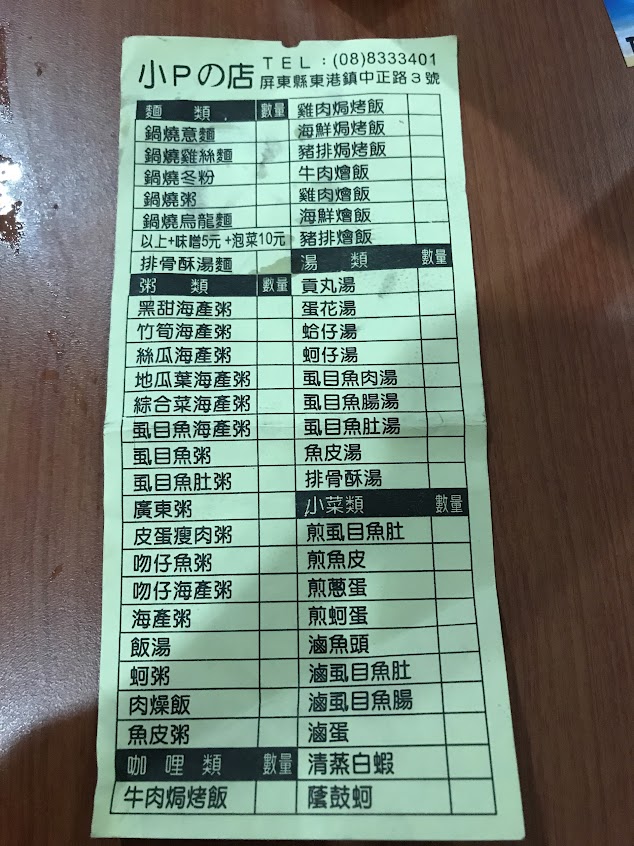 小Pの店
TEL：(08)8333401
屏東縣東港鎮中正路3號
麵類 數量
鍋燒意麵
鍋燒雞絲麵
鍋燒冬粉
鍋燒粥
鍋燒烏龍麵
以上+味噌5元+泡菜10元
排骨酥湯麵
粥類 數量
黑甜海產粥
竹筍海產粥
絲瓜海產粥
地瓜葉海產粥
綜合菜海產粥
虱目魚海產粥
虱目魚粥
虱目魚肚粥
廣東粥
皮蛋瘦肉粥
吻仔魚粥
吻仔海產粥
海產粥
飯湯
蚵粥
肉燥飯
魚皮粥
咖哩類 數量
牛肉焗烤飯
雞肉焗烤飯
海鮮焗烤飯
豬排焗烤飯
牛肉燴飯
雞肉燴飯
海鮮燴飯
豬排燴飯
湯類 數量
貢丸湯
蛋花湯
蛤仔湯
蚵仔湯
虱目魚肉湯
虱目魚腸湯
虱目魚肚湯
魚皮湯
排骨酥湯
小菜類 數量
煎虱目魚肚
煎魚皮
煎蔥蛋
煎蚵蛋
滷魚頭
滷虱目魚肚
滷虱目魚腸
滷蛋
清蒸白蝦
蔭鼓蚵